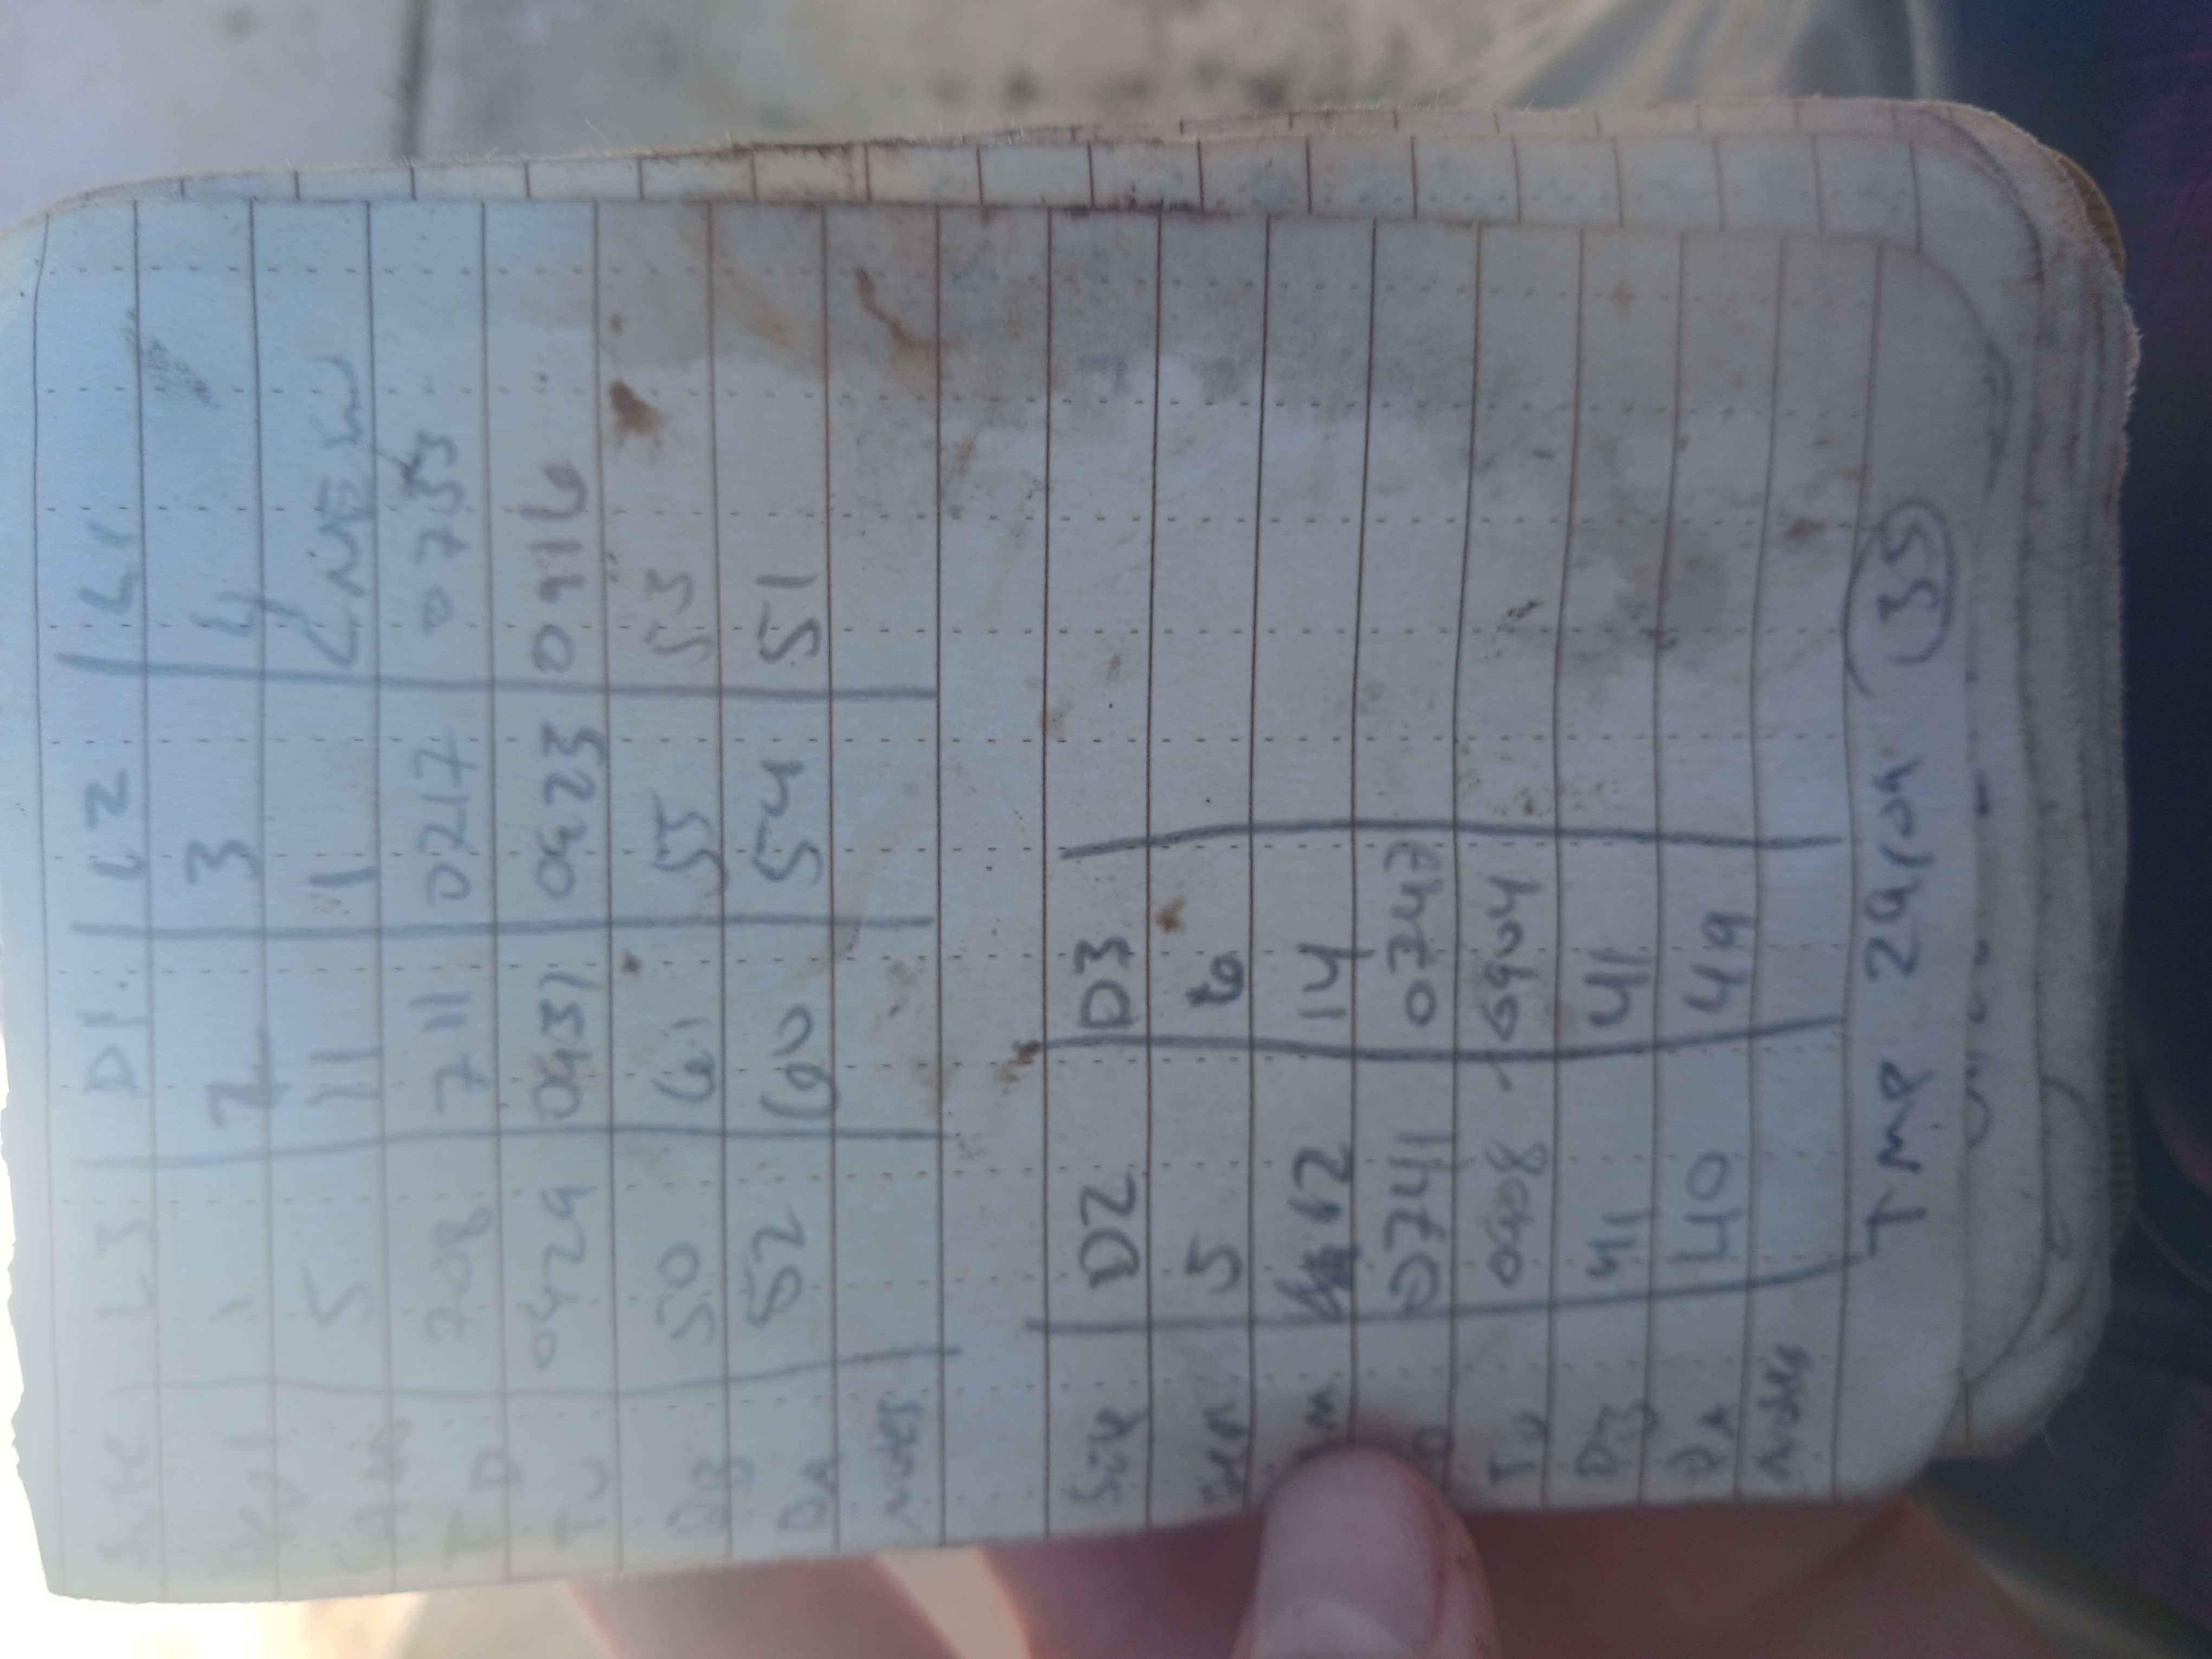 Site L3 D1 L2 L1
1 2 3 4
CAM 5 11 1 <NEW
TD 708 711 0717 0733
TU 0929 0931 0923 0916
DB 50 61 55 53
DA 52 60 54 51
Notes
Site D2 D3
5 6
12 14
D 0741 0747
TU 0908 0904
DB 41 41
DA 40 49
Notes
35